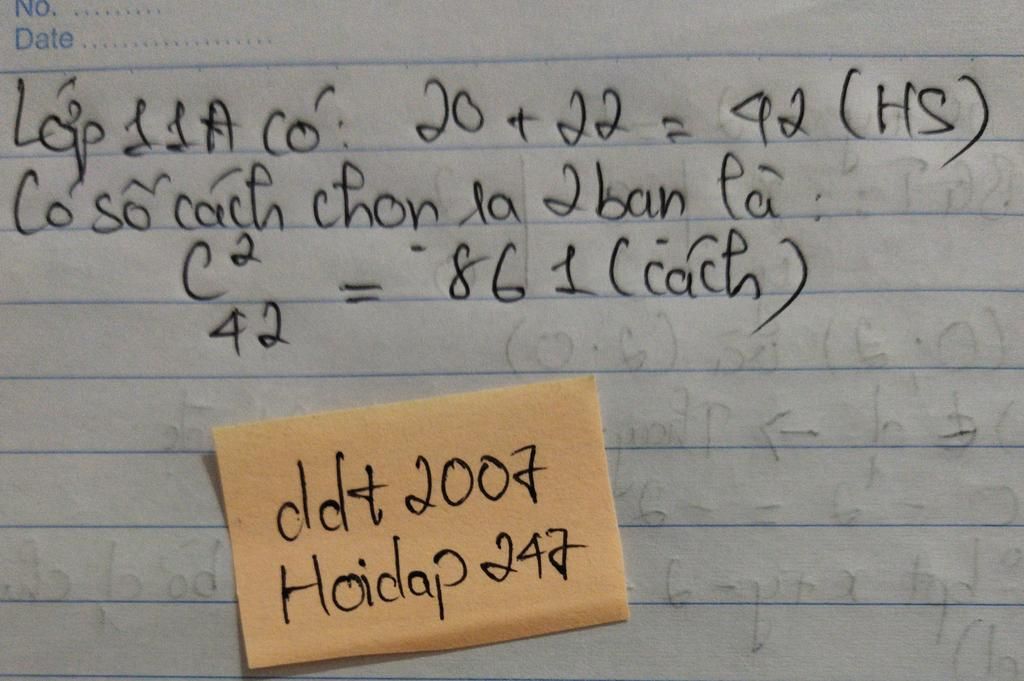 No. .........
Date ...................
Lớp 11A có: 20 + 22 = 42 (HS)
Có số cách chọn ra 2 bạn là:
C²₄₂ = 861 (cách)
ddt 2007
Hoidap 247